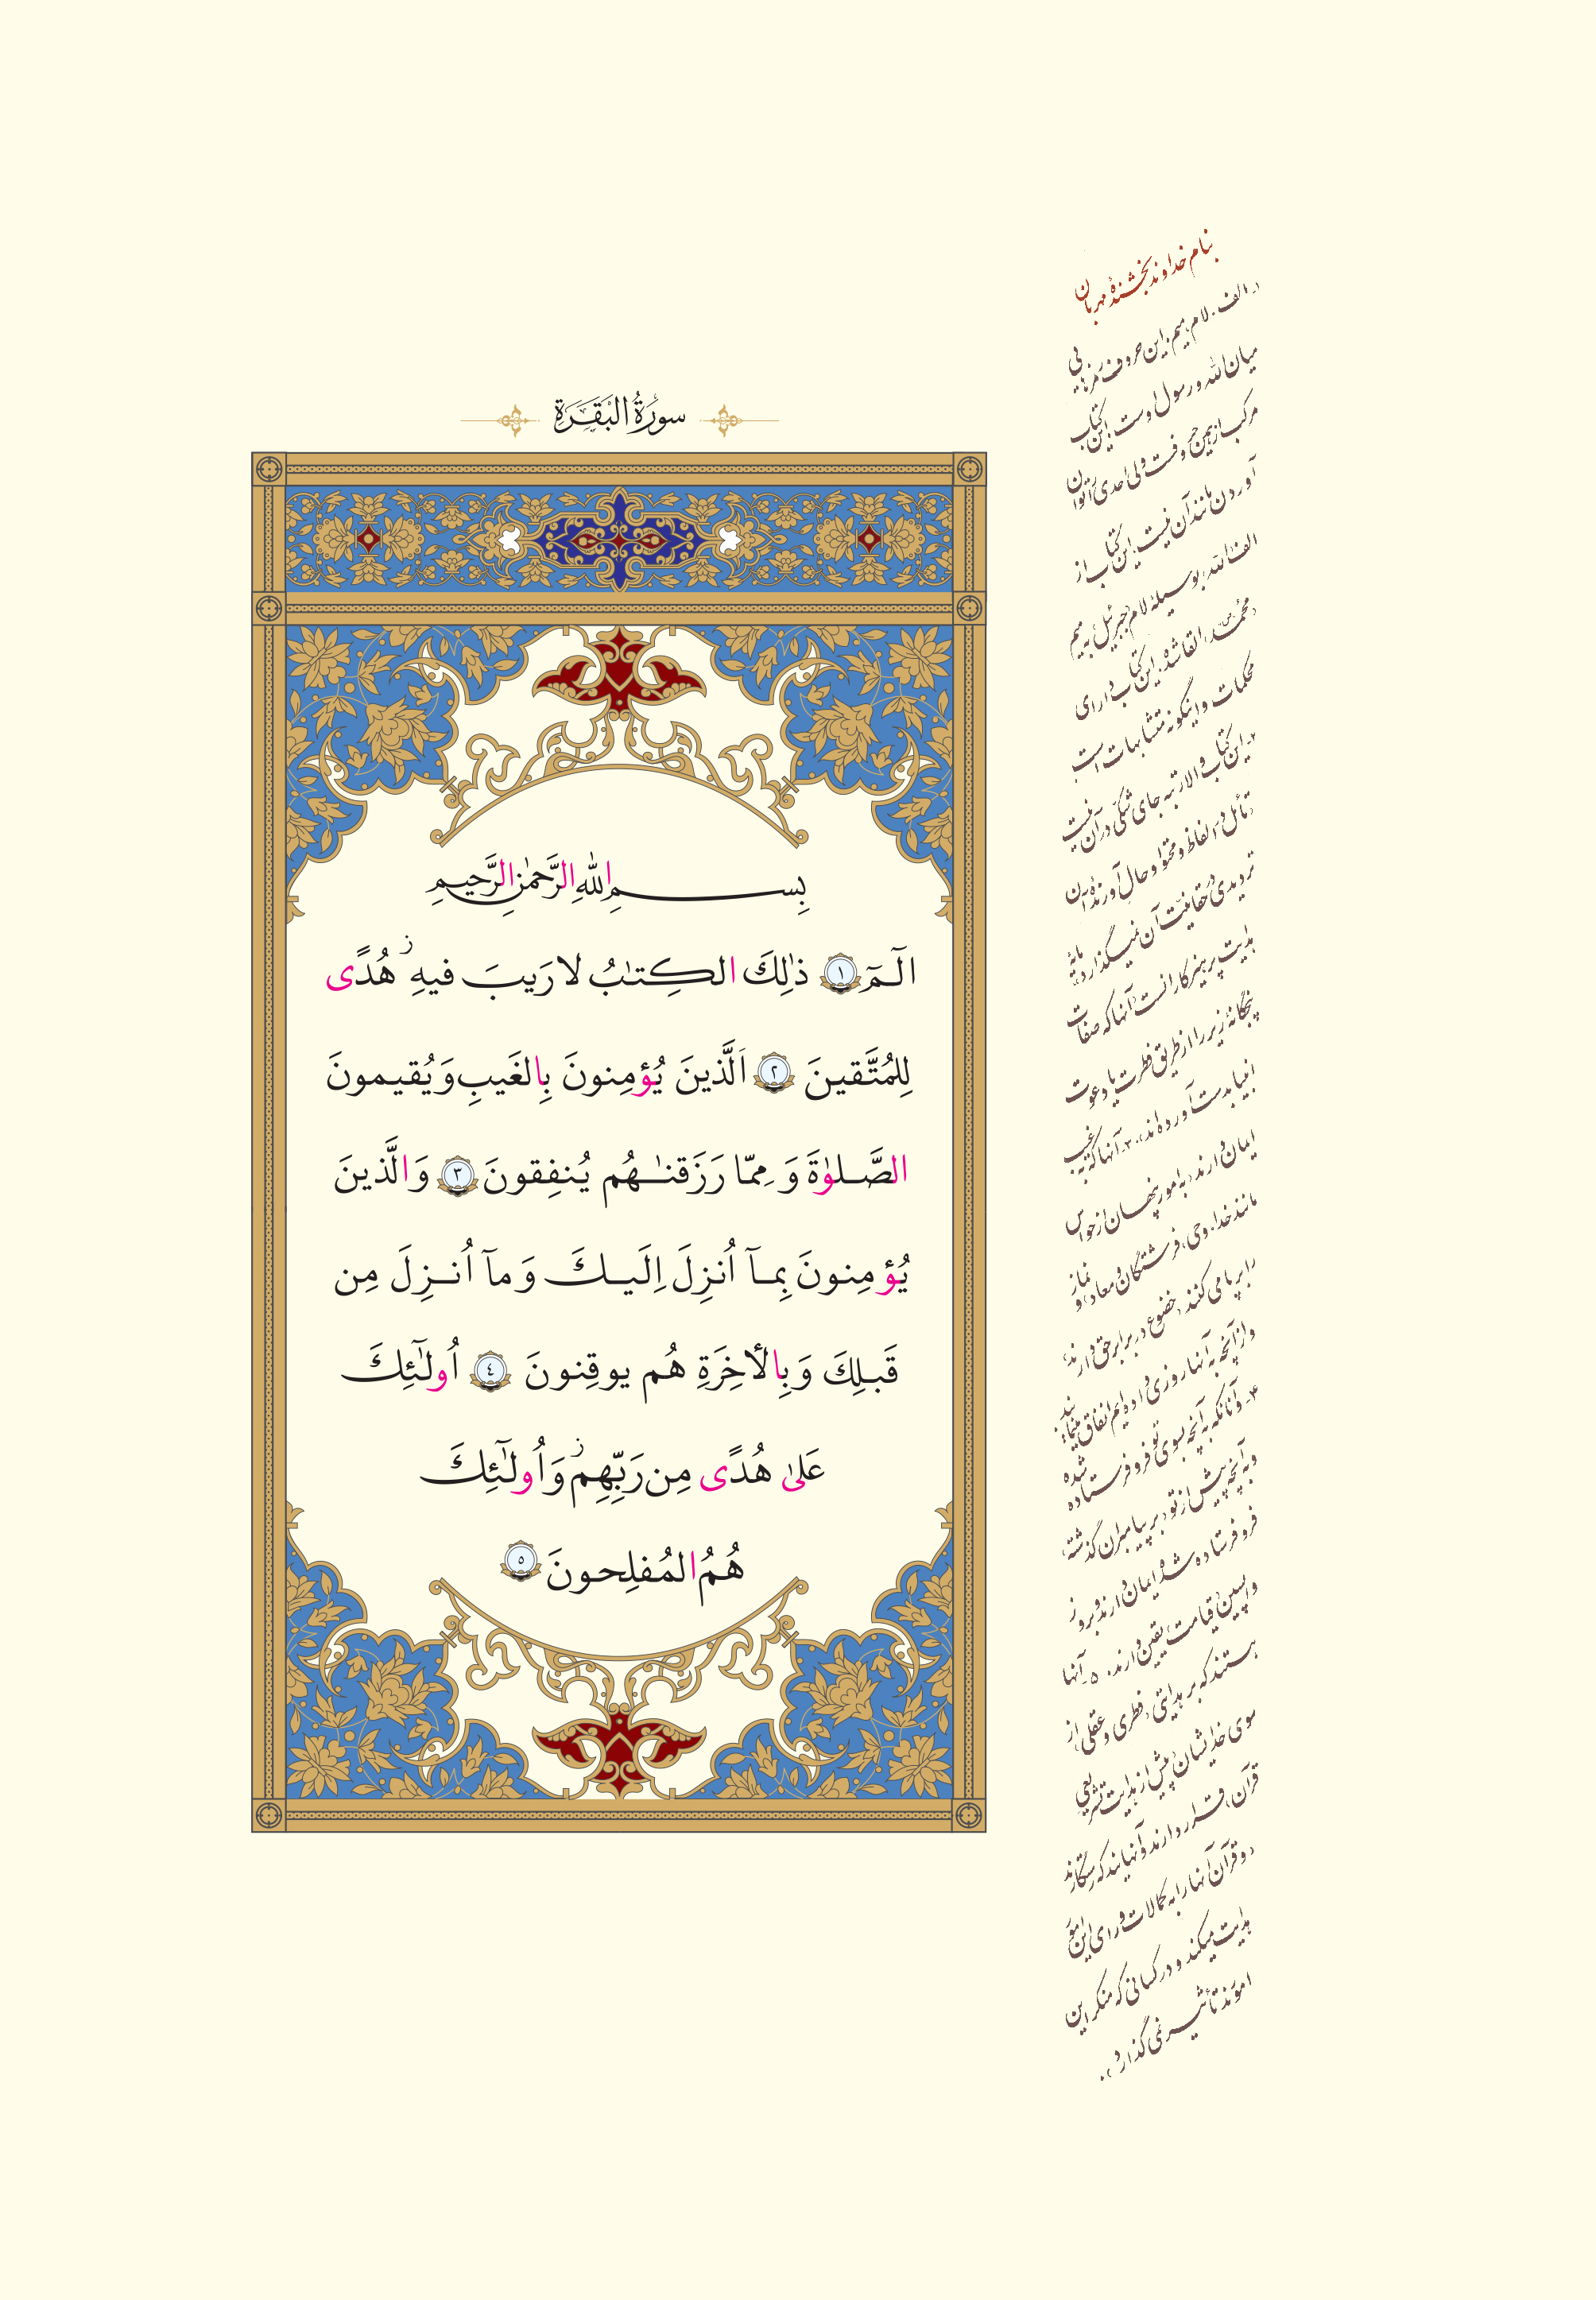 سورَةُ البَقَرَةِ
بِسمِ اللهِ الرَّحمٰنِ الرَّحیمِ
الٓمٓ ١ ذٰلِكَ الکِتٰبُ لا رَیبَ فیهِ ز هُدًی
لِلمُتَّقینَ ٢ اَلَّذینَ یُؤمِنونَ بِالغَیبِ وَ یُقیمونَ
الصَّلوٰةَ وَ مِمّا رَزَقنٰهُم یُنفِقونَ ٣ وَالَّذینَ
یُؤمِنونَ بِمآ اُنزِلَ اِلَیكَ وَ مآ اُنزِلَ مِن
قَبلِكَ وَ بِالأخِرَةِ هُم یوقِنونَ ٤ اُولٰٓئِكَ
عَلیٰ هُدًی مِن رَبِّهِم ز وَ اُولٰٓئِكَ
هُمُ المُفلِحونَ ٥
بنام خداوند بخشندهٔ مهربان
۱- الف. لام. میم، این حروف رمزهایی
میان الله و رسول اوست، این کتاب
مرکب از همین حروفست ولی احدی را توان
آوردن مانند آن نیست، این کتاب از
الف «الله» بوسیلهٔ لام «جبرئیل» به میم
«محمد» القا شده. این کتاب دارای
محکمات و اینگونه متشابهات است
۲- این کتاب والا رتبه جای شکی در آن نیست
«تأمل در الفاظ و محتوا و حال آورندهٔ آن
تردیدی در حقانیت آن نمیگذارد» مایهٔ
هدایت پرهیزکارانست «آنها که صفات
پنجگانهٔ زیر را از طریق فطرت یا دعوت
انبیا بدست آورده‌اند». ۳- آنها که به غیب
ایمان دارند «به امور پنهان از حواس
مانند خدا، وحی، فرشتگان و معاد» و نماز
را برپا می کنند «خضوع در برابر حق دارند»
و از آنچه به آنها روزی داده‌ایم انفاق مینمایند.
۴- و آنانکه به آنچه بسوی تو فرو فرستاده شده
و به آنچه پیش از تو «بر پیامبران گذشته»
فرو فرستاده شده ایمان دارند و بروز
واپسین «قیامت» یقین دارند. ۵- آنها
هستند که بر هدایتی «فطری و عقلی» از
سوی خدایشان «پیش از هدایت تشریعی
قرآن» قرار دارند و آنهایند که رستگارند
«و قرآن آنها را به کمالات ورای این امور
هدایت میکند و در کسانی که منکر این
امورند تأثیر نمی گذارد».